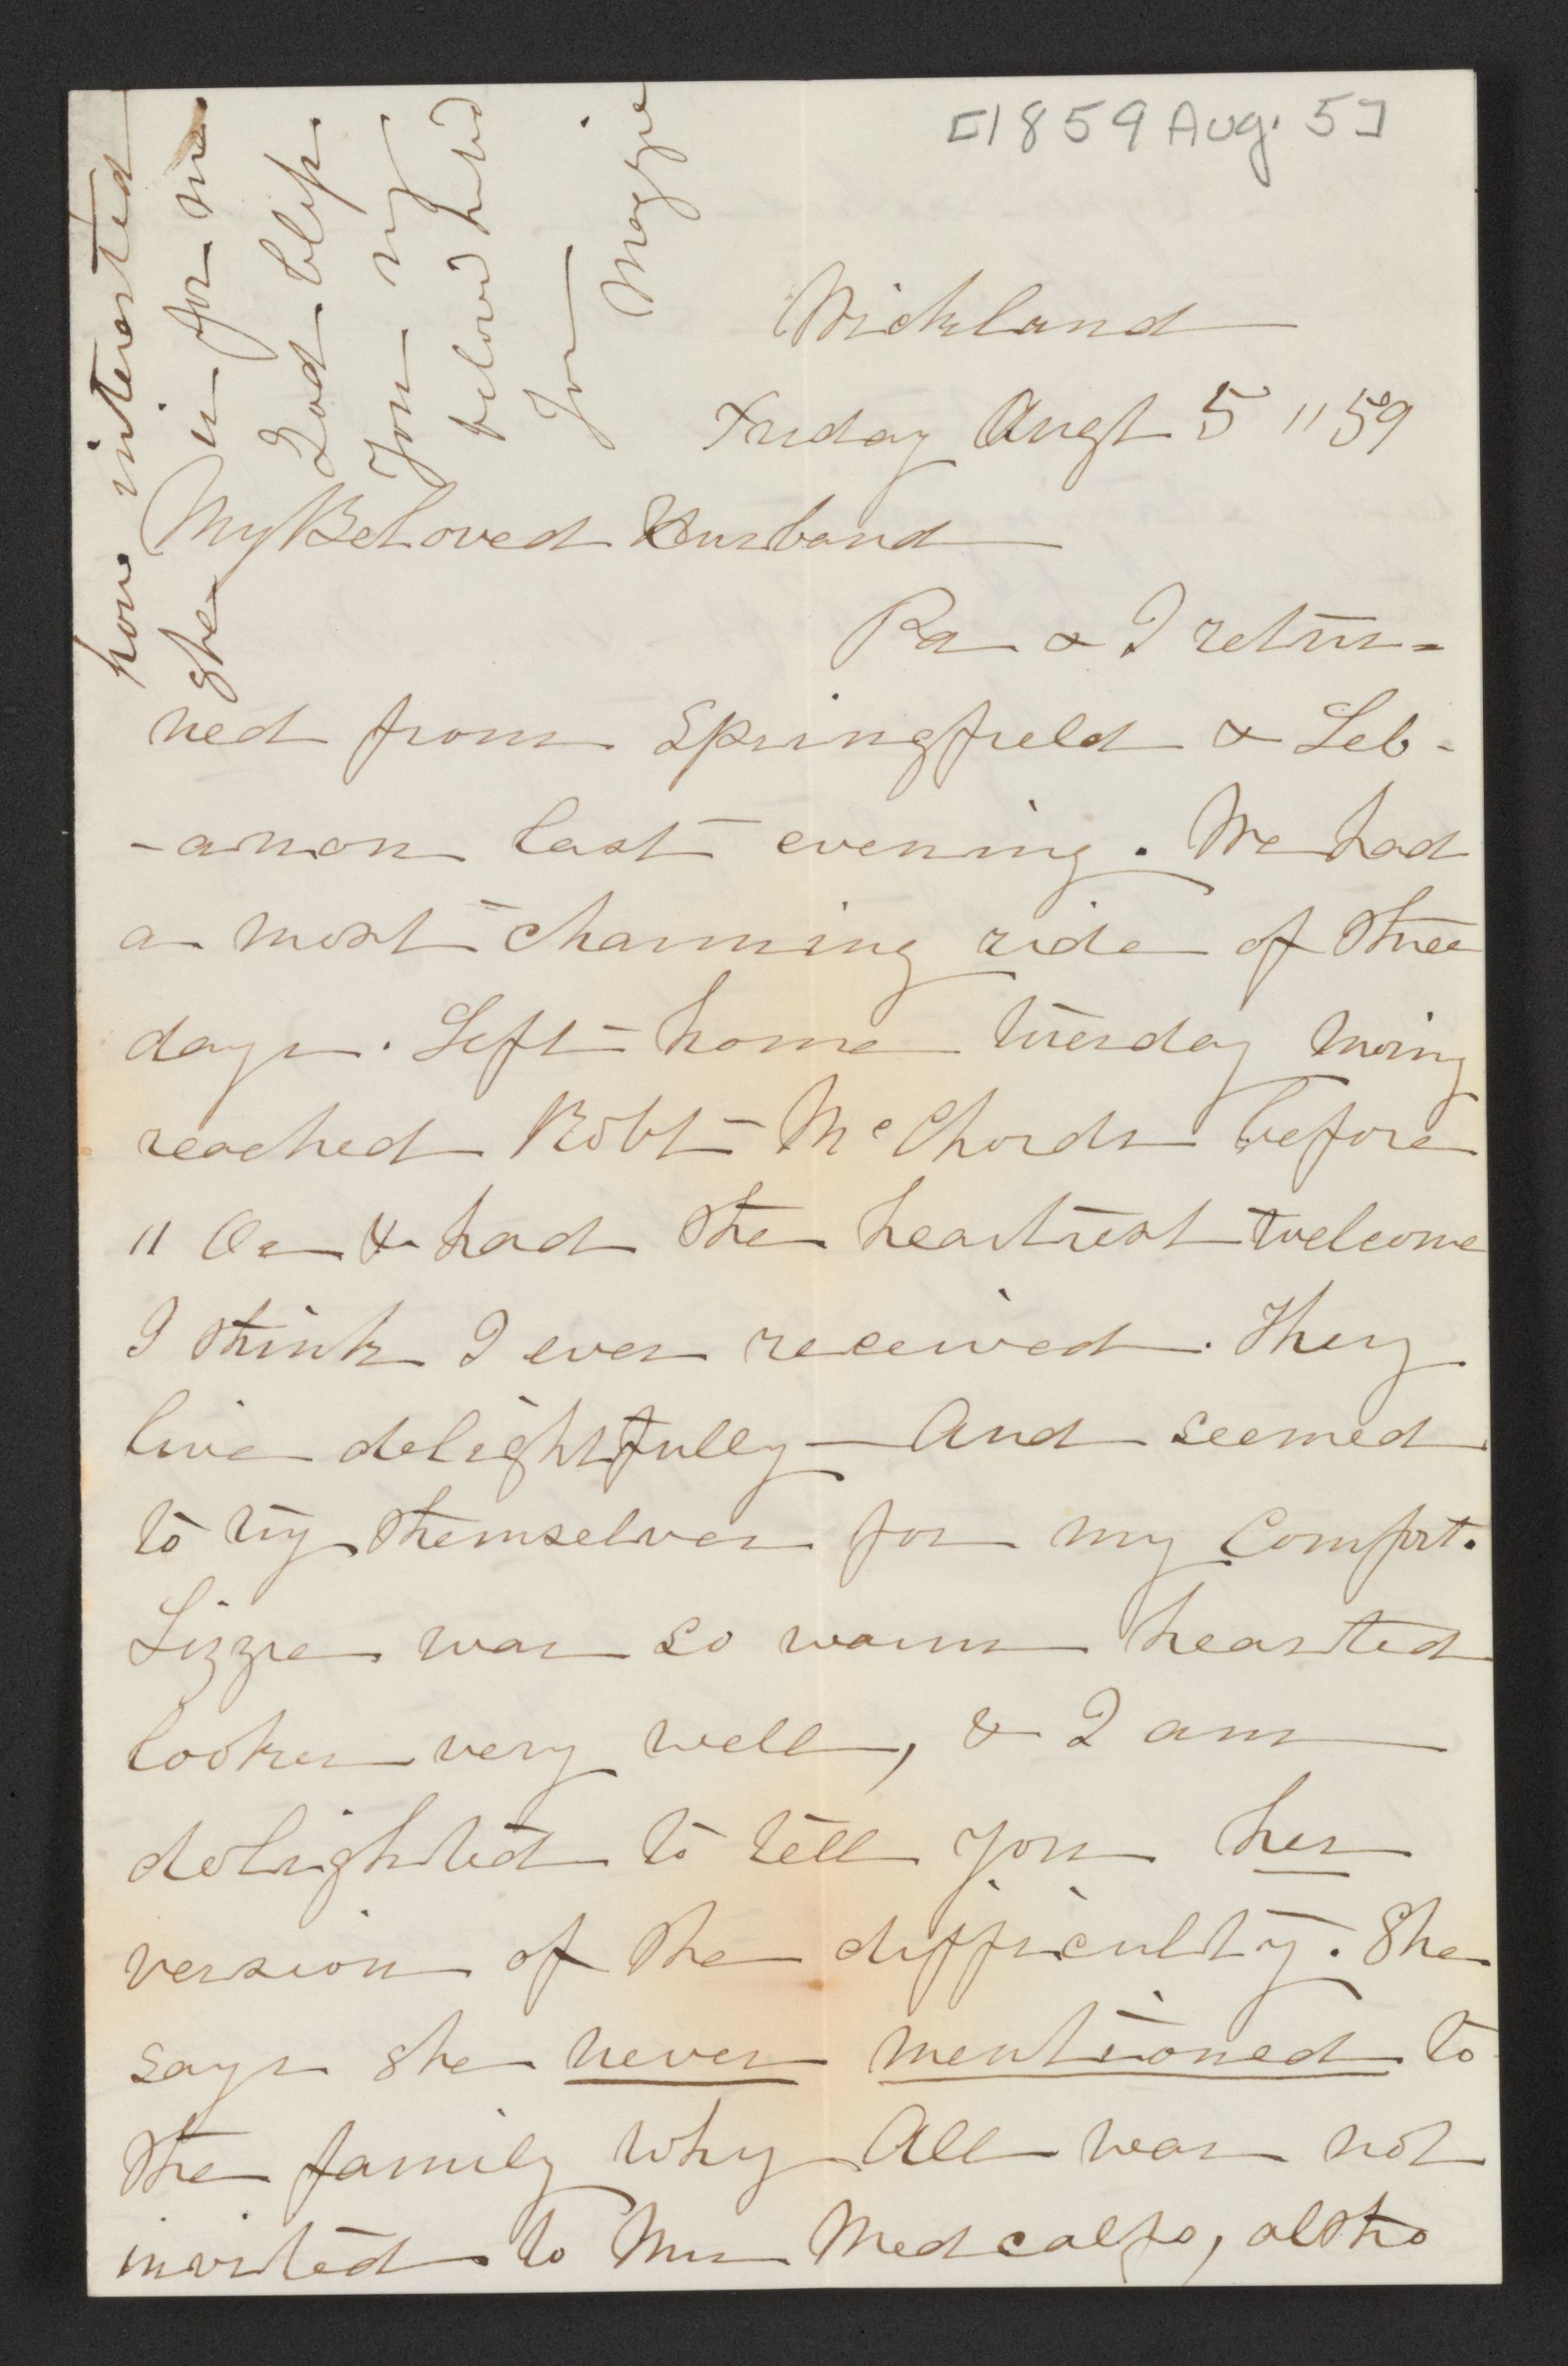 [1859 Aug. 5]
Wickland
Friday Augt 5 "59
My Beloved Husband
Pa & I retur=
ned from Springfield & Leb-
-anon last evening. We had
a most charming ride of three
days. Left home tuesday morng
reached Robt McChords before
11 Oc & had the heartiest welcome
I think I ever received. They
live delightfully - And seemed
to try themselves for my Comfort.
Lizzie was so warm hearted
looks very well, & I am
delighted to tell you her
version of the difficulty. She
says she never mentioned to
the family why All was not
invited to Mrs Medcalfs, altho
how interested
she is for me
God bless
You my
beloved husd
Your
Maggie